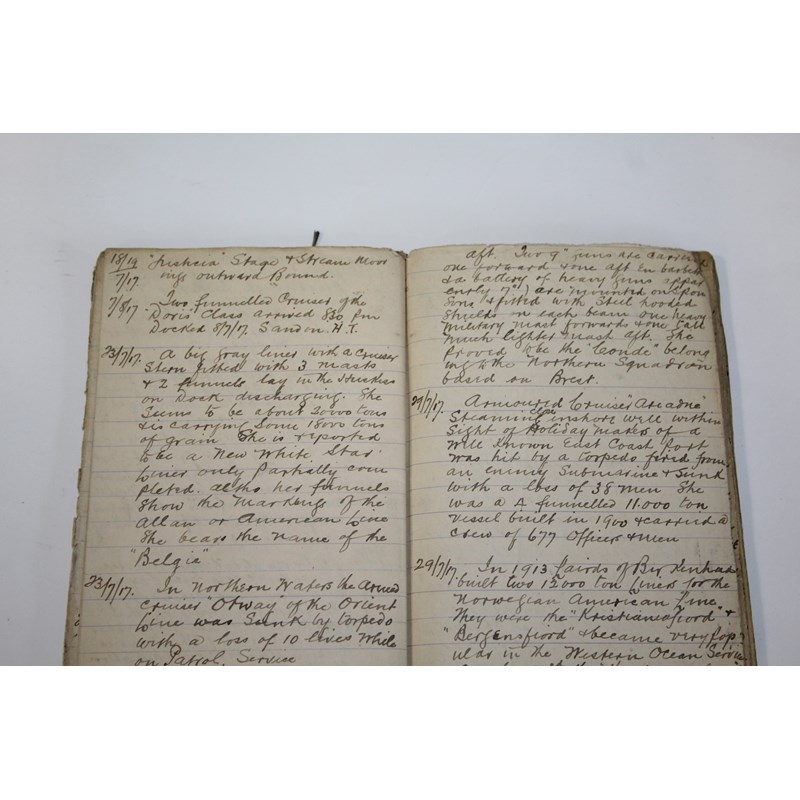 18/19
7/17
"Justicia" Stage & Stream Moor
ings outward Bound.
7/8/17 Two funnelled Cruiser of the
"Doris" Class arrived 8.30 pm
Docked 8/7/17. Sandon. H.T.
23/7/17. A big gray liner with a cruiser
Stern fitted with 3 masts
& 2 funnels lay in the Huskiss
on Dock discharging. She
Seems to be about 30000 tons
& is carrying some 18000 tons
of grain She is reported
to be a New White Star
Liner only Partially com
pleted. altho her funnels
Show the Markings of the
Allan or American Line
She bears the name of the
"Belgic"
23/7/17. In Northern Waters the Armed
cruiser Otway of the Orient
Line was Sunk by torpedo
with a loss of 10 lives While
on Patrol Service
aft. Two 9" guns are carried
one forward & one aft En barbette
& a battery of heavy guns appar
ently 7") are mounted on Spon
Sons & fitted with Steel hooded
Shields on each beam one heavy
Military mast forwards & one tall
much lighter mast aft. She
Proved to be the "Conde" belong
ing to the Northern Squadron
based on Brest.
29/7/17. Armoured Cruiser "Ariadne"
Steaming close inshore well within
Sight of Holiday makers of a
Well Known East Coast Port
was hit by a torpedo fired from
an enemy Submarine & Sunk
with a loss of 38 men She
was a 4 funnelled 11.000 ton
Vessel built in 1900 & carried a
crew of 677 Officers & men
29/7/17 In 1913 Lairds of Birkenhead
built two 12000 ton liners for the
Norwegian American Line
They were the "Kristianiafiord" &
"Bergensfiord" & became very pop
ular in the Western Ocean Service